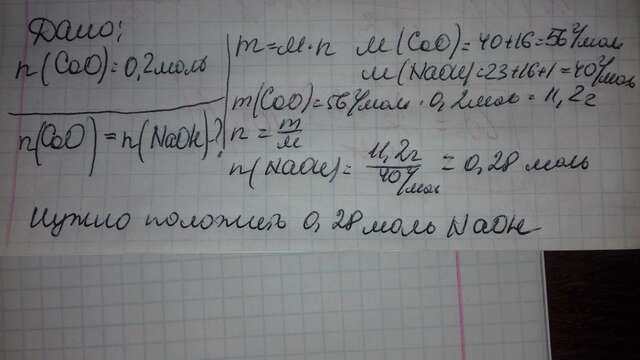 Дано:
n(CaO)=0,2моль
n(CaO)=n(NaOH)?
m=м·n м(CaO)=40+16=56г/моль
м(NaOH)=23+16+1=40г/моль
m(CaO)=56г/моль·0,2моль=11,2г
n=m/м
n(NaOH)=11,2г/40г/моль=0,28моль
Нужно положить 0,28моль NaOH